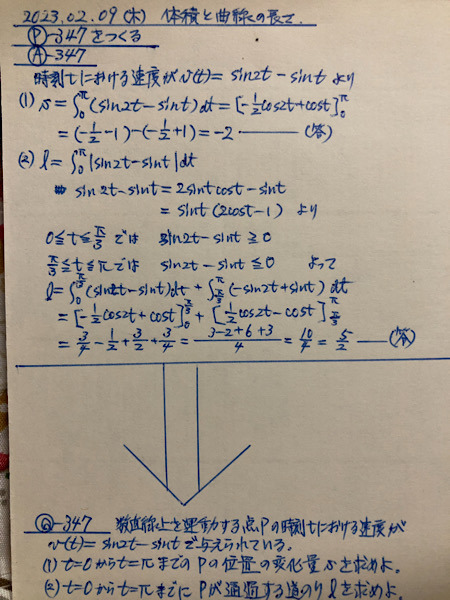 2023.02.09(木) 体積と曲線の長さ
Ⓟ-347をつくる
Ⓐ-347
時刻tにおける速度がv(t)=sin2t-sintより
(1) s=∫₀^π(sin2t-sint)dt=[-1/2cos2t+cost]₀^π
=(-1/2-1)-(-1/2+1)=-2 ――(答)
(2) l=∫₀^π|sin2t-sint|dt
sin2t-sint=2sintcost-sint
=sint(2cost-1) より
0≦t≦π/3では sin2t-sint≧0
π/3≦t≦πでは sin2t-sint≦0 よって
l=∫₀^(π/3)(sin2t-sint)dt+∫_(π/3)^π(-sin2t+sint)dt
=[-1/2cos2t+cost]₀^(π/3)+[1/2cos2t-cost]_(π/3)^π
=3/4-1/2+3/2+3/4=(3-2+6+3)/4=10/4=5/2 ――(答)
Ⓠ-347 数直線上を運動する点Pの時刻tにおける速度が
v(t)=sin2t-sintで与えられている。
(1) t=0からt=πまでのPの位置の変化量sを求めよ。
(2) t=0からt=πまでにPが通過する道のりlを求めよ。